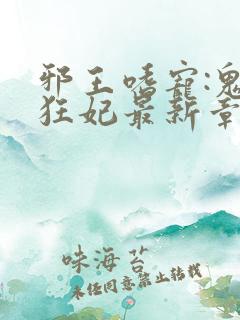 邪王嗜宠:鬼
狂妃最新章
味海苔
未经同意禁止转载